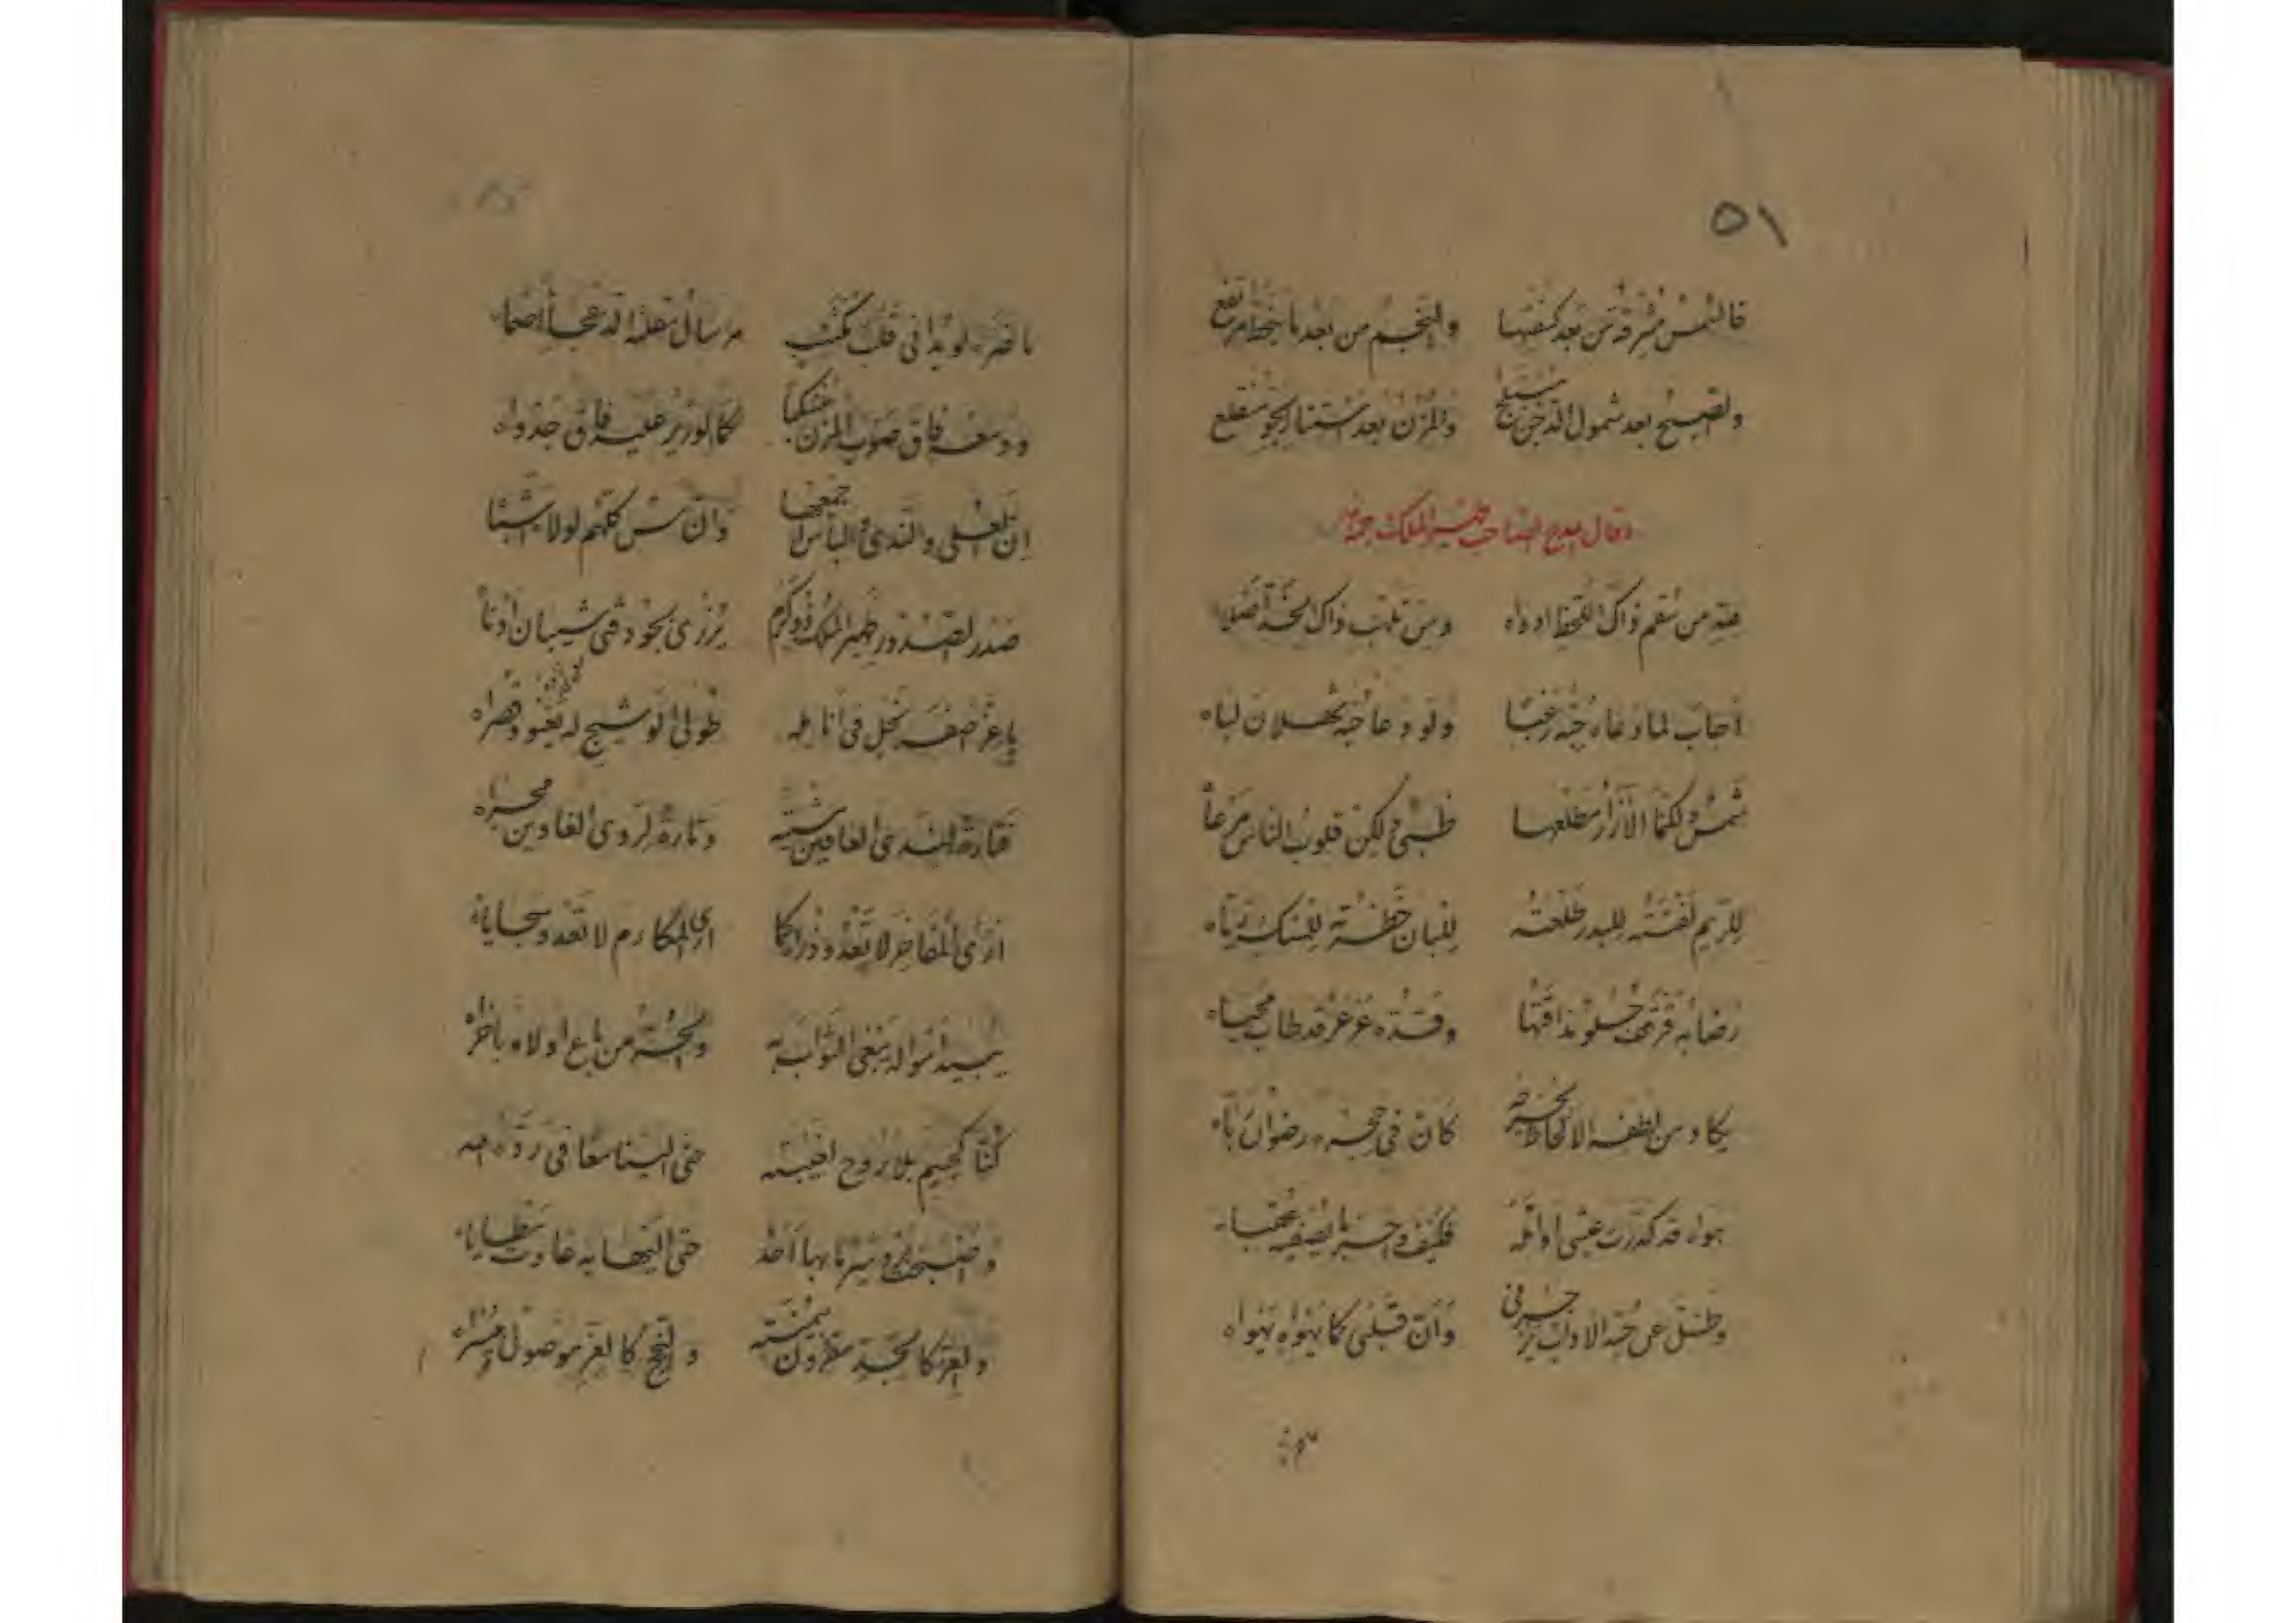 ٥١
فالشمس مشرقة من بعد كسفتها والنجم من بعد ما يخط مرتفع
والصبح بعد شمول الدجن منبلج والمزن بعد استنار الجو منقلع
وقال يمدح الصاحب ظهير الملك
من سقم ذاك اللحظ ادواه ومن تلهب ذاك الخد أصلاه
أجاب لما دعاه حبه رغبا ولو دعا حبه ثهلان لباه
شمس ولكنما الأزرار مطلعها ظبي ولكن قلوب الناس مرعاه
للريم لفتته للبدر طلعته للبان خطرته للمسك رياه
رضابه قرقف حلو مذاقتها وقده عرعر قد طاب مجناه
يكاد من لطفه الالحاظ تجرحه كان في حجره رضوان رباه
هواه قد كدرت عيشي اوائله فكيف واحسرتا تصفيه عقباه
وظل عن حبه الاداب يزجرني وأن قلبي كما يهواه يهواه
ما ضره لو بدا في قلب مكتئب
ودمعه فاق صوب المزن منسكبا كما الوزير عليه فاق جدواه
ان العلى والندى والباس اجمعها وان كلهم لولاه
صدر الصدور ظهير الملك ذو كرم يزري بجود فتى شيبان أدناه
يا عز اصفر نحل في أنامله طولى الوشيج له يعنو وقصراه
فتارة لندى العافين وتارة لردى العادين مجراه
ارى المفاخر لا تعدو ذراك كما ارى المكارم لا تعدو سجاياه
يبيد أمواله يبغي الثواب به من باع اولاه باخراه
كنا كجسم بلا روح لغيبته حتى الينا معا في رده الله
وأصبحت حتى اليها به عادت مطاياه
والعز كالمجد مقرون بيمنته والنجح كالعز موصول بيسراه